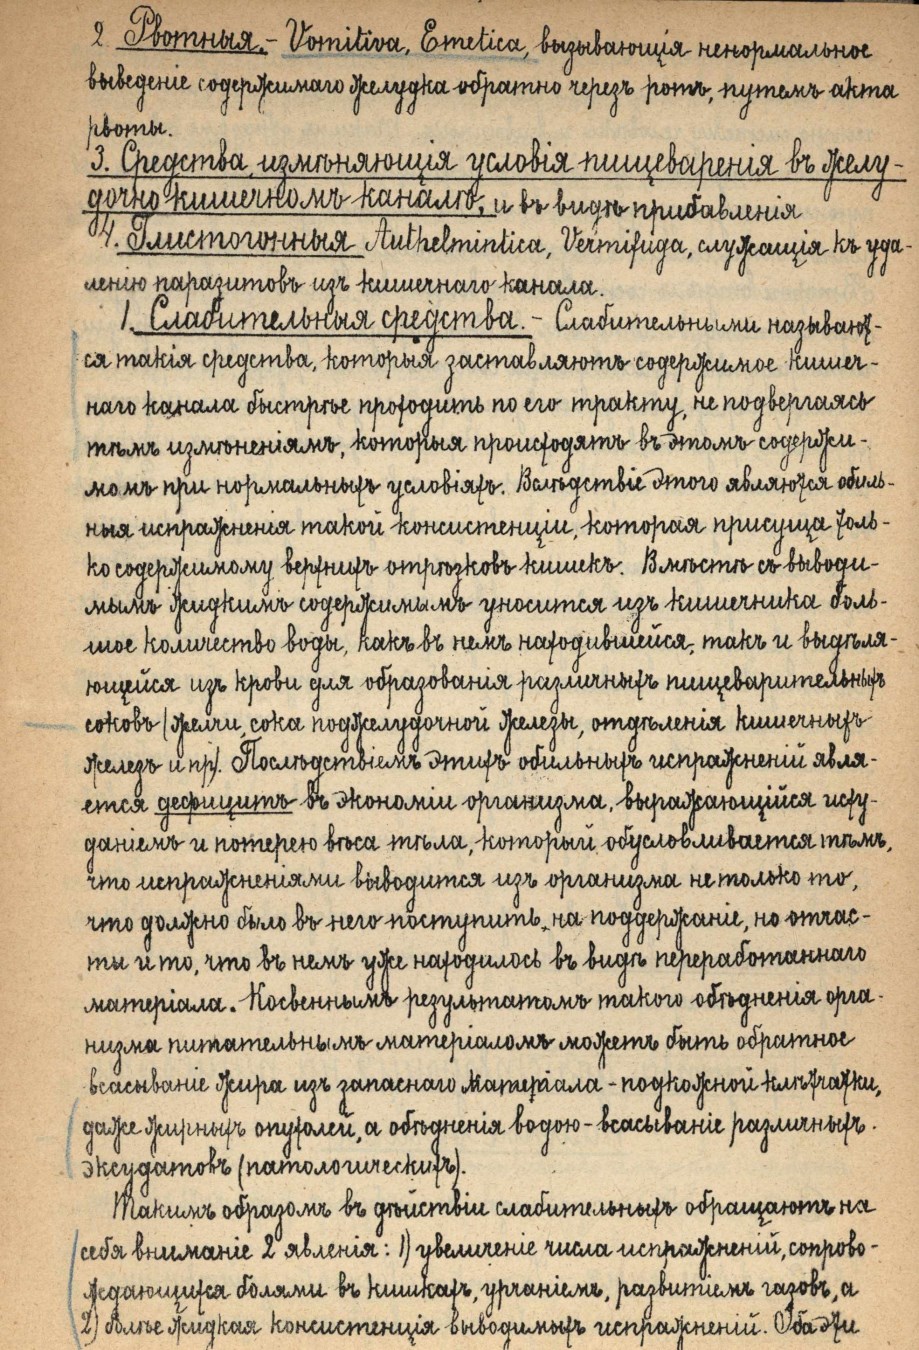 2. Рвотныя. – Vomitiva, Emetica, вызывающія ненормальное
выведеніе содержимаго желудка обратно черезъ ротъ, путемъ акта
рвоты.
3. Средства, измѣняющія условія пищеваренія въ желу-
дочно-кишечномъ каналѣ, и въ видѣ прибавленія
4. Глистогонныя Authelmintica, Vermifuga, служащія къ уда-
ленію паразитовъ изъ кишечнаго канала.
1. Слабительныя средства. – Слабительными называют-
ся такія средства, которыя заставляютъ содержимое кишеч-
наго канала быстрѣе проходить по его тракту, не подвергаясь
тѣмъ измѣненіямъ, которыя происходятъ въ этомъ содержи-
момъ при нормальныхъ условіяхъ. Вслѣдствіе этого являются обиль-
ныя испражненія такой консистенціи, которая присуща толь-
ко содержимому верхнихъ отрѣзковъ кишекъ. Вмѣстѣ съ выводи-
мымъ жидкимъ содержимымъ уносится изъ кишечника боль-
шое количество воды, какъ въ немъ находившейся, такъ и выдѣля-
ющейся изъ крови для образованія различныхъ пищеварительныхъ
соковъ (желчи, сока поджелудочной железы, отдѣленія кишечныхъ
железъ и пр). Послѣдствіемъ этихъ обильныхъ испражненій явля-
ется дефицитъ въ экономіи организма, выражающійся исху-
даніемъ и потерею вѣса тѣла, который обусловливается тѣмъ,
что испражненіями выводится изъ организма не только то,
что должно было въ него поступить, на поддержаніе, но отчас-
ти и то, что въ немъ уже находилось въ видѣ переработаннаго
матеріала. Косвеннымъ результатомъ такого обѣдненія орга-
низма питательнымъ матеріаломъ можетъ быть обратное
всасываніе жира изъ запаснаго матеріала – подкожной клѣтчатки,
даже жирныхъ опухолей, а обѣдненія водою – всасываніе различныхъ
эксудатовъ (патологическихъ).
Такимъ образомъ въ дѣйствіи слабительныхъ обращаютъ на
себя вниманіе 2 явленія: 1) увеличеніе числа испражненій, сопрово-
ждающихся болями въ кишкахъ, урчаніемъ, развитіемъ газовъ, а
2) болѣе жидкая консистенція выводимыхъ испражненій. Оба эти